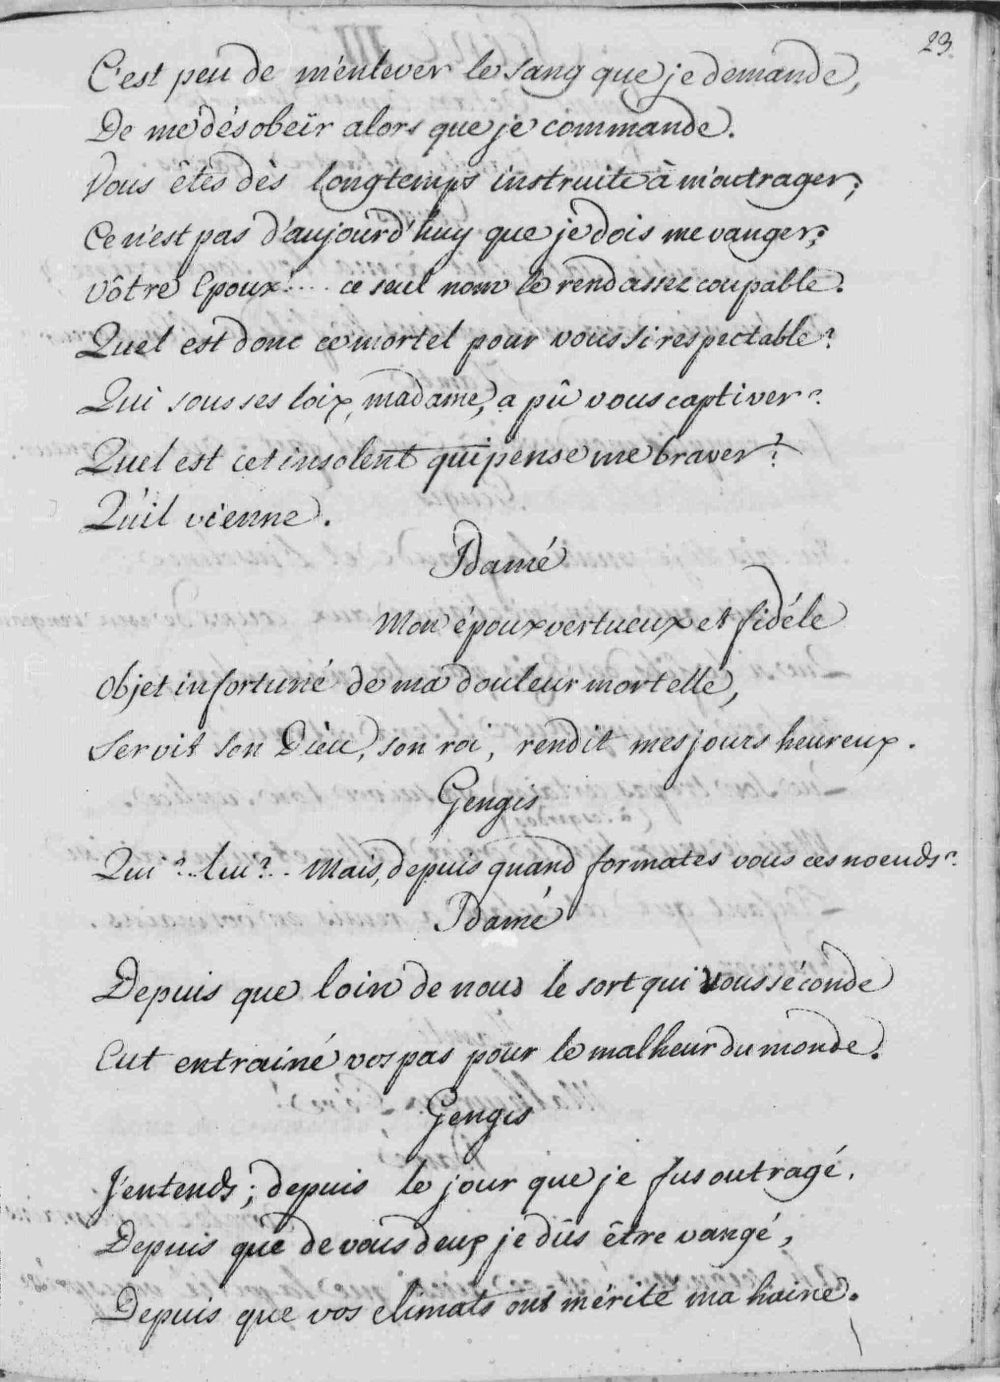 23.
C'est peu de m'enlever le sang que je demande,
De me désobeïr alors que je commande.
Vous êtes dès longtemps instruite à m'outrager;
Ce n'est pas d'aujourd'huy que je dois me vanger;
Vôtre Epoux!.... ce seul nom le rend assez coupable.
Quel est donc ce mortel pour vous si respectable?
Qui sous ses loix, madame, a pû vous captiver?
Quel est cet insolent qui pense me braver?
Qu'il vienne.
Idamé
Mon époux vertueux et fidéle
Objet infortuné de ma douleur mortelle,
Servit son Dieu, son roi, rendit mes jours heureux.
Gengis
Qui?.. lui?.. Mais, depuis quand formates vous ces noeuds?
Idamé
Depuis que loin de nous le sort qui vous séconde
Eut entrainé vos pas pour le malheur du monde.
Gengis
J'entends; depuis le jour que je fus outragé.
Depuis que de vous deux je dûs être vangé,
Depuis que vos climats ont mérité ma haine.